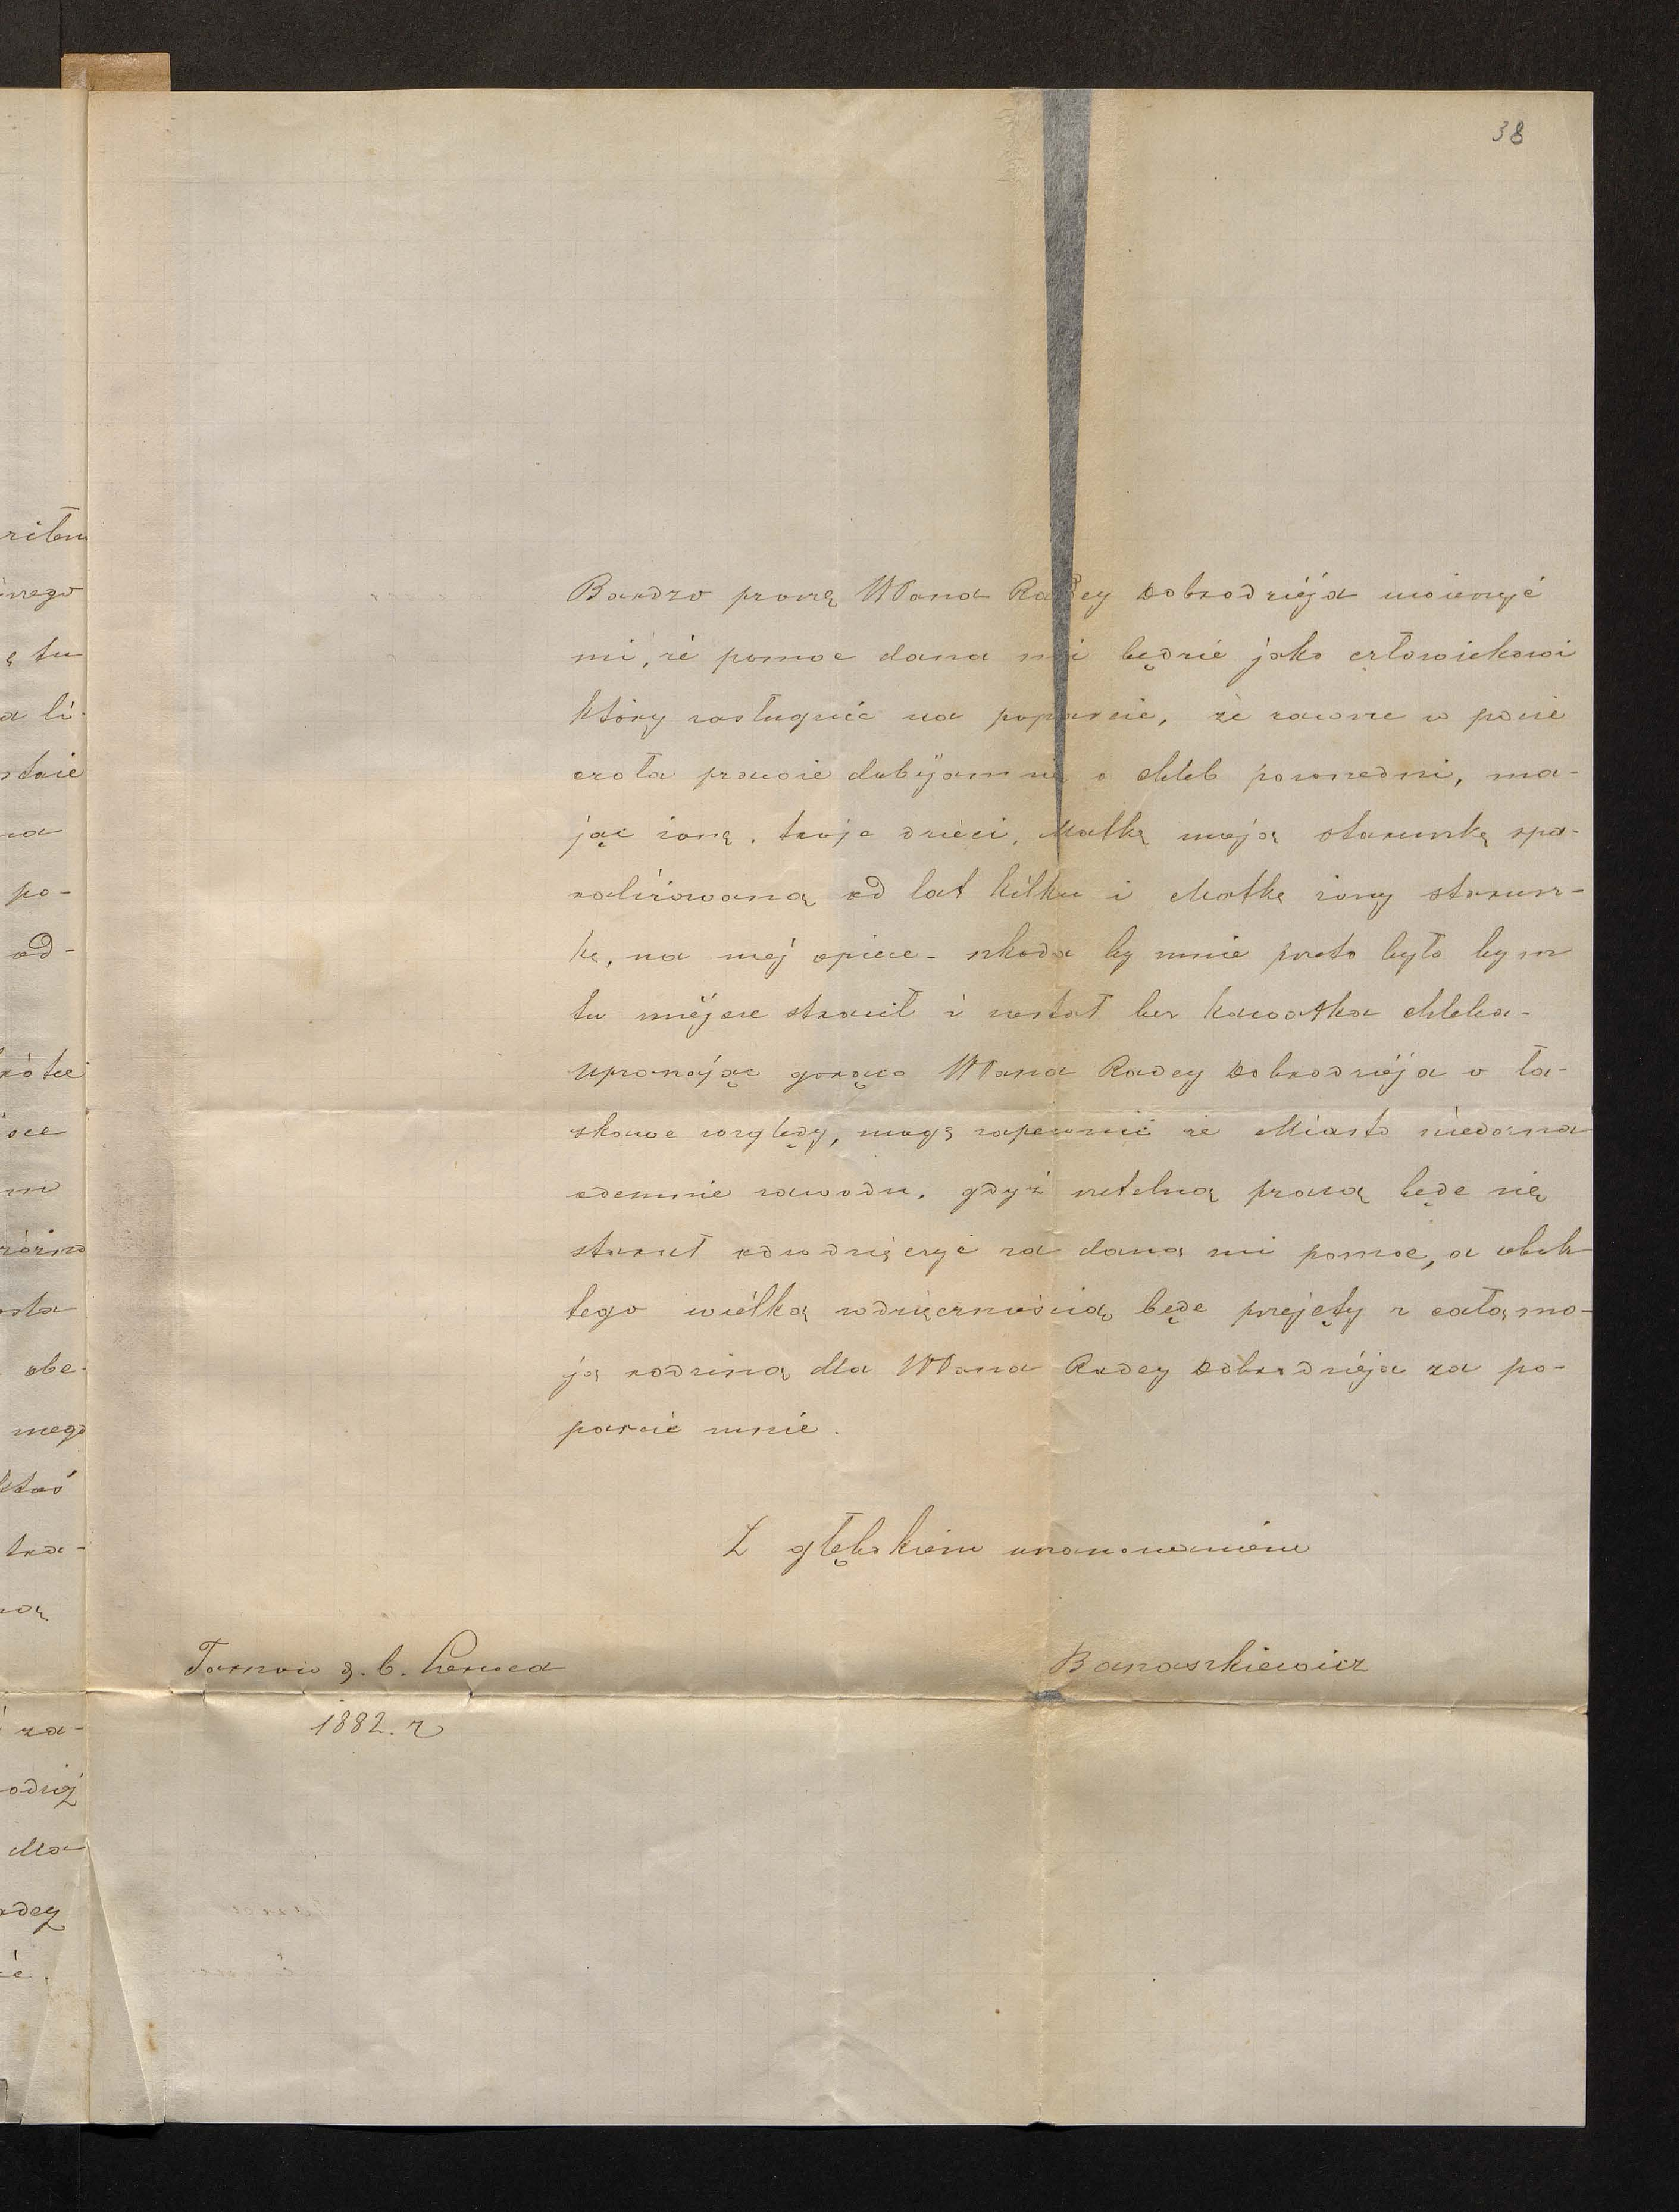 38
Bardzo proszę WPana Radcy Dobrodziéja wierzyć
mi, że pomoc dana mi będzie jako człowiekowi
który zasługuie na poparcie, że zawsze w pocie
czoła prawie dobijam się o chleb powszedni, ma-
jąc żonę, troje dzieci, Matkę moją staruszkę spa-
raliżowaną od lat kilku i Matkę żony starusz-
kę, na mej opiece - szkoda by mnie przeto było bym
tu miejsce stracił i został bez kawałka chleba -
upraszając gorąco WPana Radcy Dobrodziéja o ła-
skawe względy, mogę zapewnić że Miasto niedozna
odemnie zawodu, gdyż rzetelną pracą będę się
starał odwdzięczyć za daną mi pomoc, a obok
tego wielką wdzięcznością będę przejęty z całą mo-
ją rodziną dla WPana Radcy Dobrodziéja za po-
parcie mnie.
Z głębokiem uszanowaniem
Tarnow d. 6. Czerwca
Banaszkiewicz
1882. r
ę tu
po-
od-
obe-
mego
ktoś
za-
dla